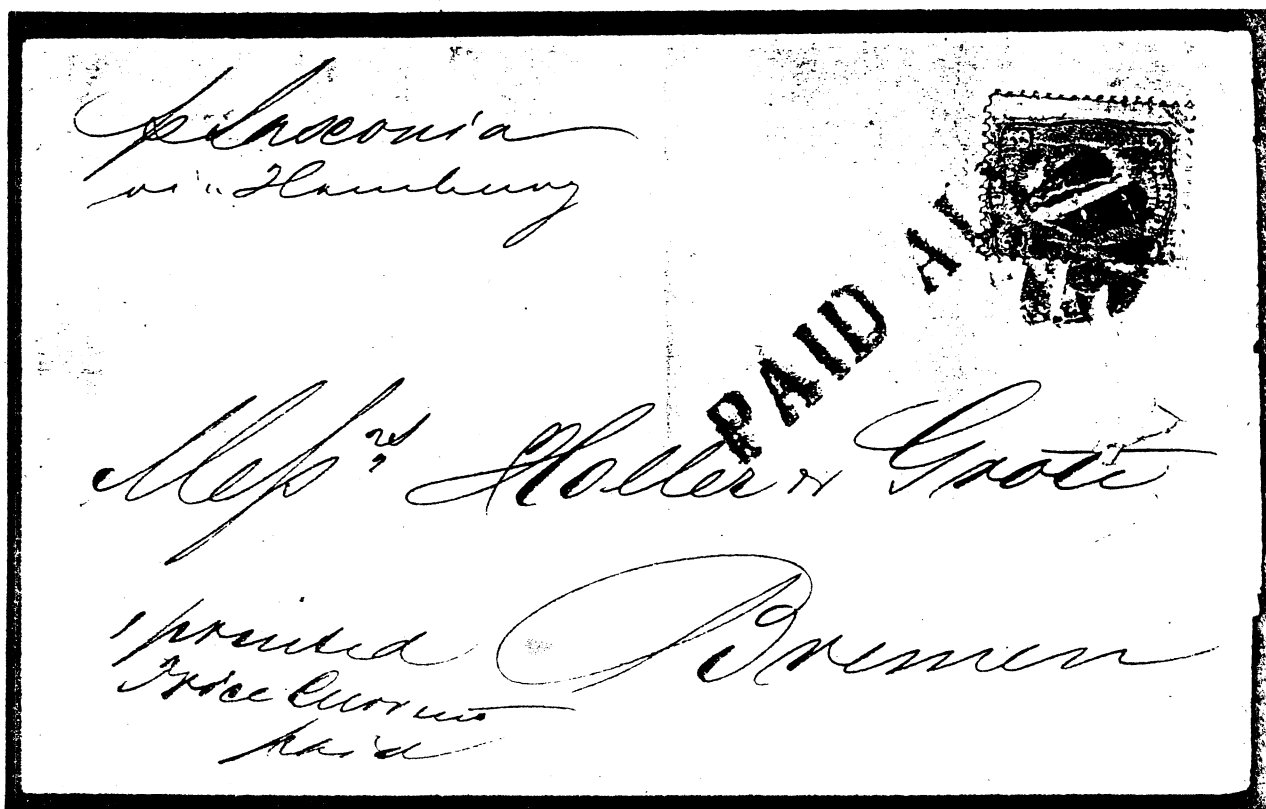 p Saxonia
via Hamburg
PAID AL
Messrs Holler & Grote
Bremen
1 printed
Price Current
paid